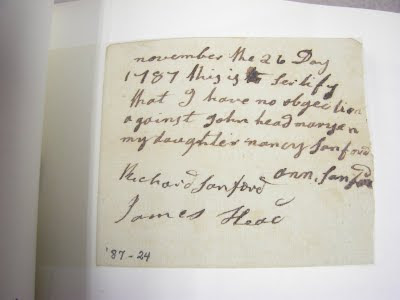 november the 26 Day
1787 this is to Sertify
that I have no obgection
against John head maryen
my daughter nancy Sanford
ann. Sanford
Richard Sanford
James Head
'87-24